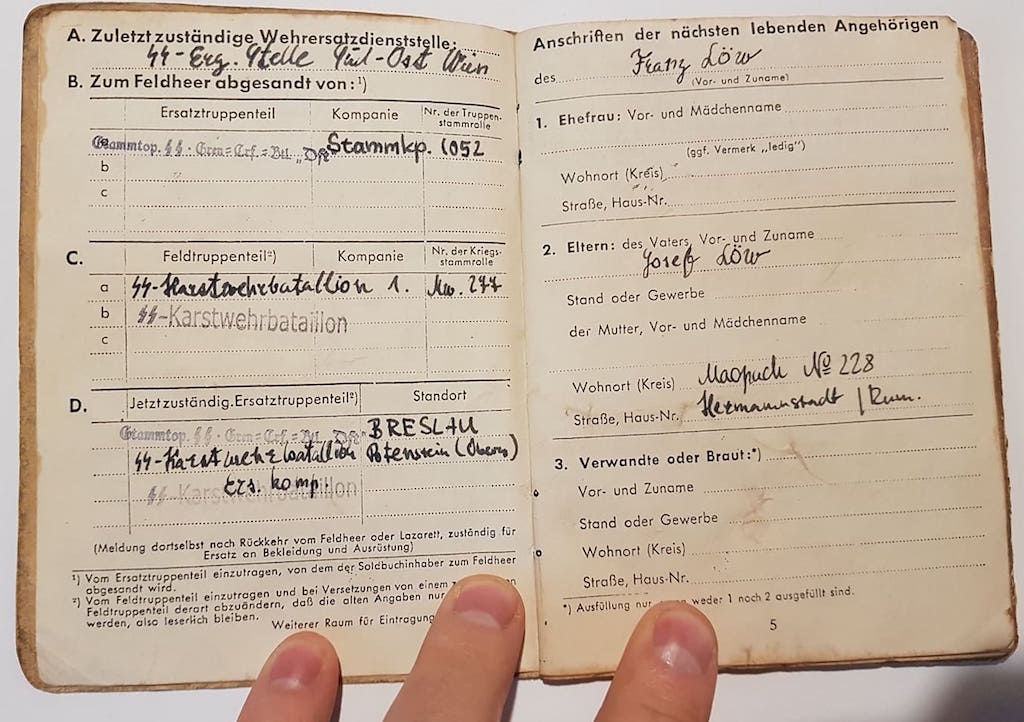 A. Zuletzt zuständige Wehrersatzdienststelle:
SS-Erg. Stelle Süd-Ost Wien
B. Zum Feldheer abgesandt von:¹)
Ersatztruppenteil Kompanie Nr. der Truppen-
stammrolle
a Stammtop. SS-Gren.=Ers.=Btl. „Ost“ Stammkp. 1052
b
c
C. Feldtruppenteil²) Kompanie Nr. der Kriegs-
stammrolle
a SS-Karstwehrbatallion 1. 277
b SS-Karstwehrbataillon
c
D. Jetzt zuständig. Ersatztruppenteil²) Standort
Stammtop. SS-Gren=Ers.=Btl. „Ost“ BRESLAU
SS-Karstwehrbatallion Potenstein
Ers. Komp.
SS-Karstwehrbataillon
(Meldung dortselbst nach Rückkehr vom Feldheer oder Lazarett, zuständig für
Ersatz an Bekleidung und Ausrüstung)
¹) Vom Ersatztruppenteil einzutragen, von dem der Soldbuchinhaber zum Feldheer
abgesandt wird.
²) Vom Feldtruppenteil einzutragen und bei Versetzungen von einem
Feldtruppenteil derart abzuändern, daß die alten Angaben nur
werden, also leserlich bleiben.
Weiterer Raum für Eintragung
Anschriften der nächsten lebenden Angehörigen
des Franz Löw
(Vor- und Zuname)
1. Ehefrau: Vor- und Mädchenname
(ggf. Vermerk „ledig“)
Wohnort (Kreis)
Straße, Haus-Nr.
2. Eltern: des Vaters, Vor- und Zuname
Josef Löw
Stand oder Gewerbe
der Mutter, Vor- und Mädchenname
Wohnort (Kreis) № 228
Straße, Haus-Nr. Hermannstadt / Rum.
3. Verwandte oder Braut:*)
Vor- und Zuname
Stand oder Gewerbe
Wohnort (Kreis)
Straße, Haus-Nr.
*) Ausfüllung nur weder 1 noch 2 ausgefüllt sind.
5